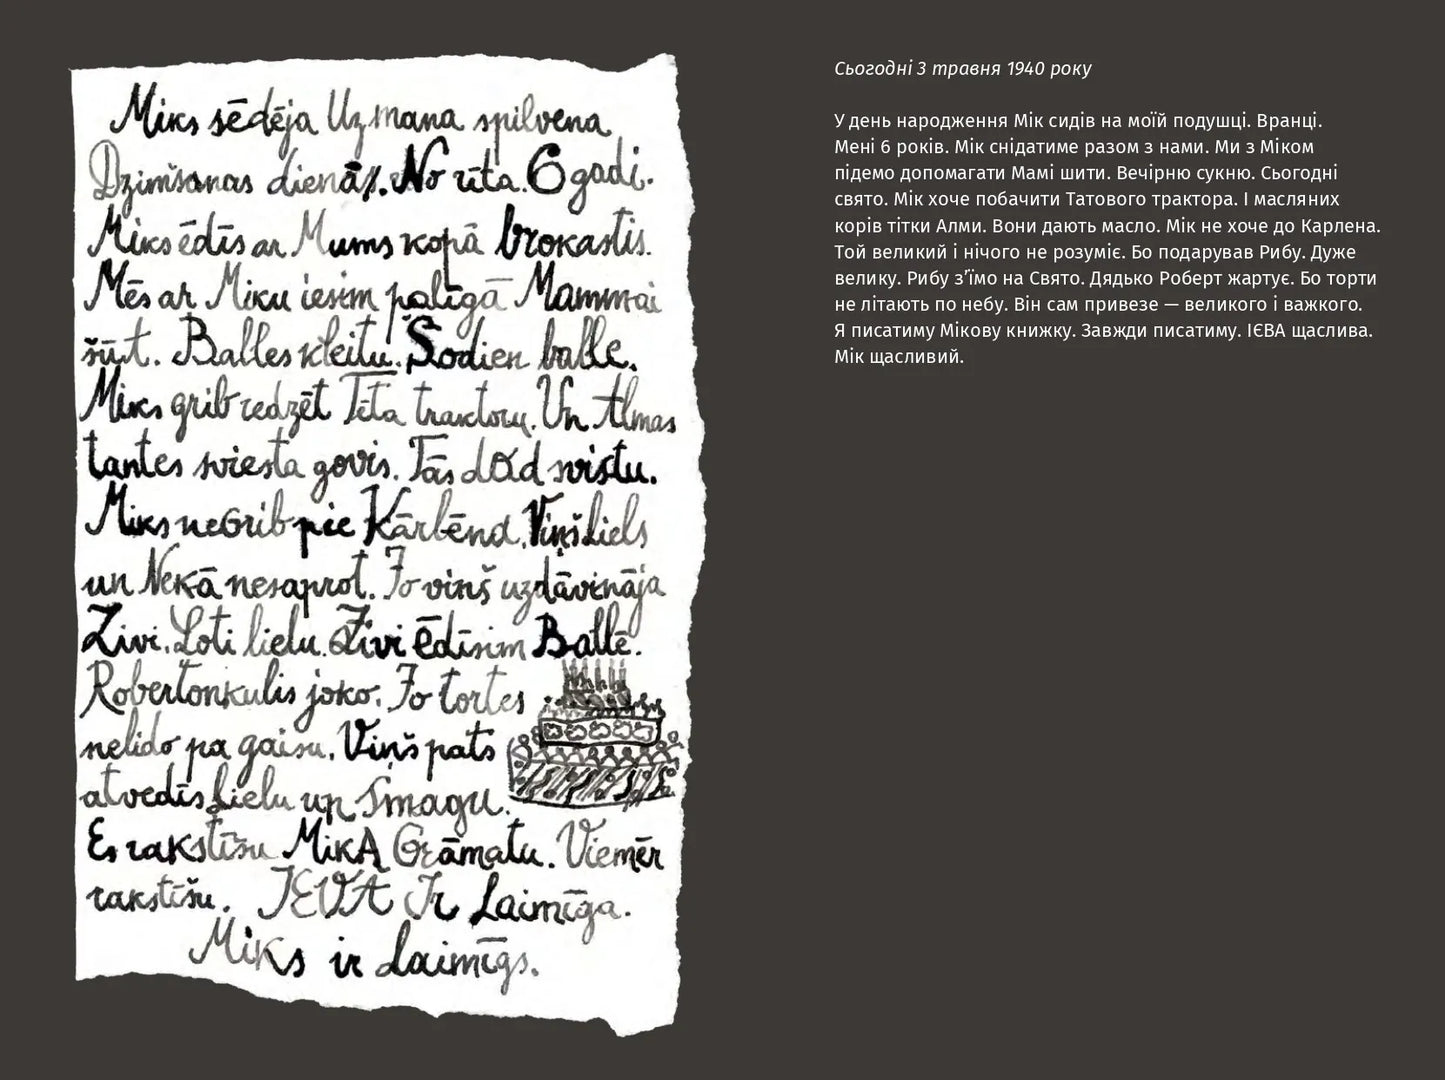 Miks sēdēja Uz mana spilvena
Dzimšanas dienā. No rīta. 6 gadi.
Miks ēdīs ar Mums kopā brokastis.
Mēs ar Miku iesim palīgā Mammai
šūt. Balles kleitu. Šodien balle.
Miks grib redzēt Tēta traktoru. Un Almas
tantes sviesta govis. Tās dod svistu.
Miks neGrib pie Kārlēna. Viņš Liels
un Nekā nesaprot. Jo viņš uzdāvināja
Zivi. Loti lielu. Zivi ēdīsim Ballē.
Robertonkulis joko. Jo tortes
nelido pa gaisu. Viņš pats
atvedīs Lielu un Smagu.
Es rakstīšu MikA Grāmatu. Viemēr
rakstīšu. IEVA Ir Laimīga.
Miks ir Laimīgs.
Сьогодні 3 травня 1940 року
У день народження Мік сидів на моїй подушці. Вранці.
Мені 6 років. Мік снідатиме разом з нами. Ми з Міком
підемо допомагати Мамі шити. Вечірню сукню. Сьогодні
свято. Мік хоче побачити Татового трактора. І масляних
корів тітки Алми. Вони дають масло. Мік не хоче до Карлена.
Той великий і нічого не розуміє. Бо подарував Рибу. Дуже
велику. Рибу з’їмо на Свято. Дядько Роберт жартує. Бо торти
не літають по небу. Він сам привезе — великого і важкого.
Я писатиму Мікову книжку. Завжди писатиму. ІЄВА щаслива.
Мік щасливий.